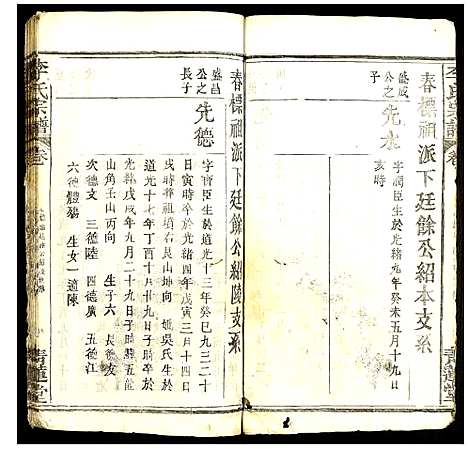 春標祖派下廷餘公紹本支系
盛成公之子
先水
字潤臣生於光緒九年癸未五月十九日
亥時
李氏宗譜
卷
青蓮堂
春標祖派下廷餘公紹陵支系
盛昌公之長子
先德
字寶臣生於道光十三年癸巳九三二十
日寅時卒於光緒四年戊寅十月二十一
戌時葬祖墳右艮山坤向 媲吳氏生於
道光十七年丁酉十月廿八日子時卒於
光緒戊戌年九月二十九日子時葬五龍
山角壬山丙向 生子六 長德友
次德文 三德陸 四德廣 五德江
六德體 生女一適陳
李氏宗譜
卷
青蓮堂